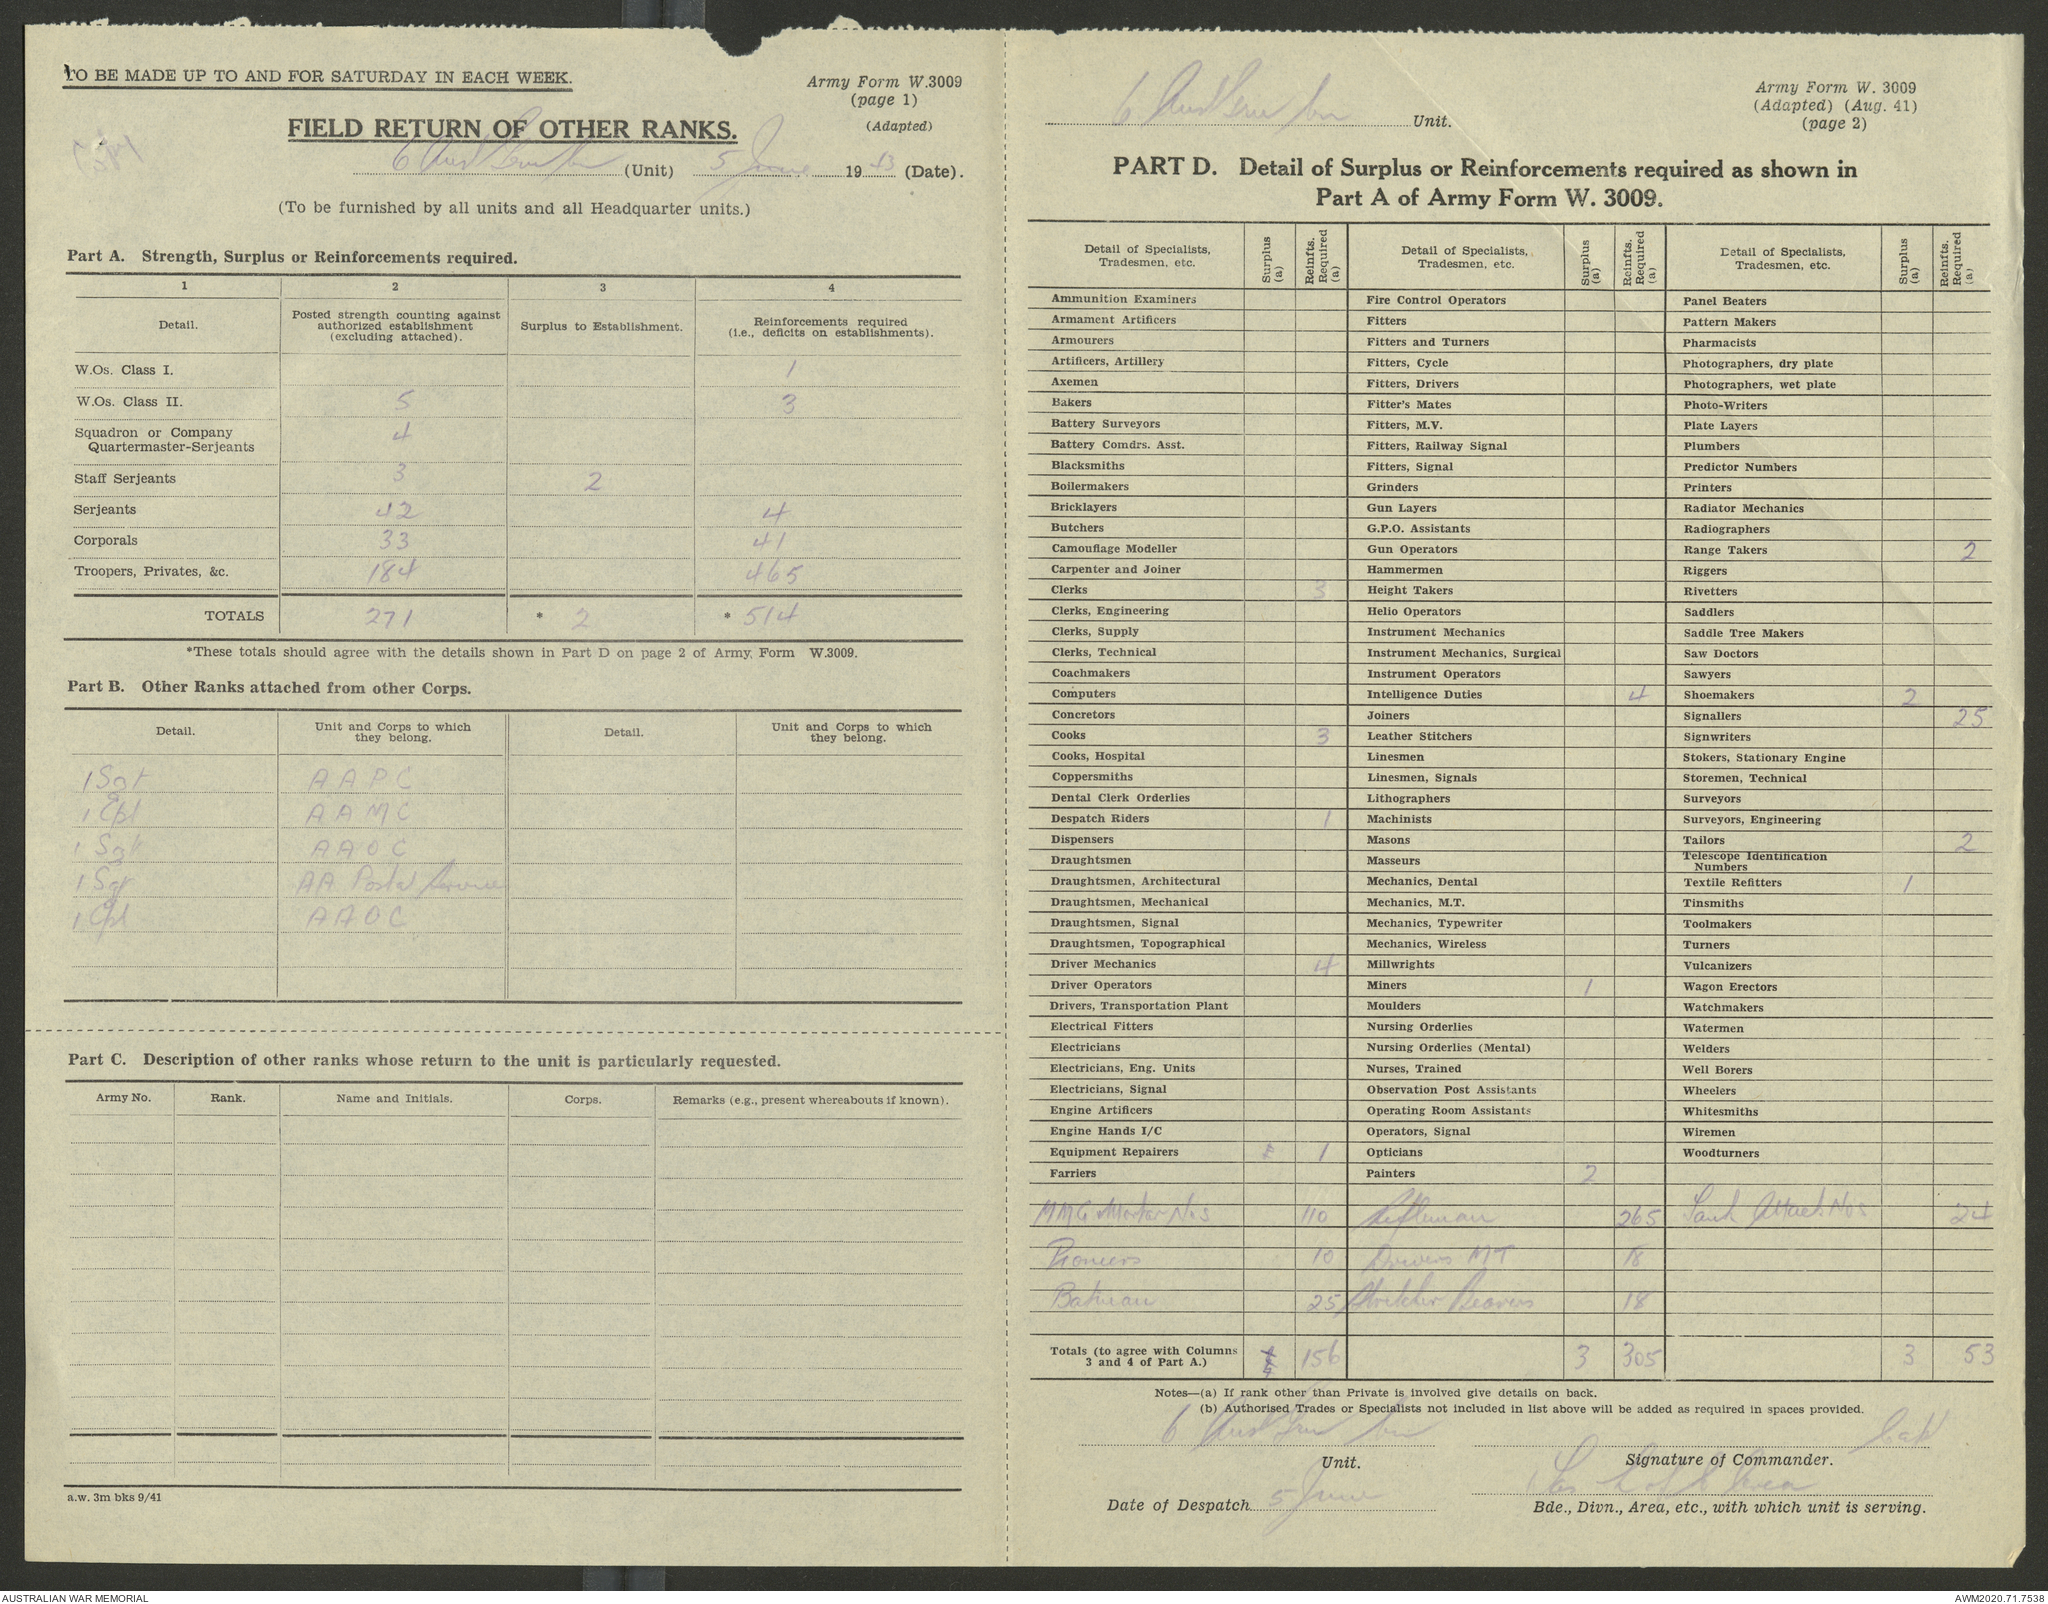 TO BE MADE UP TO AND FOR SATURDAY IN EACH WEEK.
Army Form W.3009
(page 1)
(Adapted)
FIELD RETURN OF OTHER RANKS.
6 Aust Bn (Unit) 5 June 1943 (Date).
(To be furnished by all units and all Headquarter units.)
Part A. Strength, Surplus or Reinforcements required.
1 2 3 4
Detail. Posted strength counting against authorized establishment (excluding attached). Surplus to Establishment. Reinforcements required (i.e., deficits on establishments).
W.Os. Class I. 1
W.Os. Class II. 5 3
Squadron or Company Quartermaster-Serjeants 4
Staff Serjeants 3 2
Serjeants 42 4
Corporals 33 41
Troopers, Privates, &c. 184 465
TOTALS 271 * 2 * 514
*These totals should agree with the details shown in Part D on page 2 of Army Form W.3009.
Part B. Other Ranks attached from other Corps.
Detail. Unit and Corps to which they belong. Detail. Unit and Corps to which they belong.
1 Sgt AAPC
1 Cpl AAMC
1 Sgt AAOC
1 Sgt AA Postal Service
1 Cpl AAOC
Part C. Description of other ranks whose return to the unit is particularly requested.
Army No. Rank. Name and Initials. Corps. Remarks (e.g., present whereabouts if known).
a.w. 3m bks 9/41
6 Aust Bn Unit.
Army Form W. 3009
(Adapted) (Aug. 41)
(page 2)
PART D. Detail of Surplus or Reinforcements required as shown in
Part A of Army Form W. 3009.
Detail of Specialists, Tradesmen, etc. Surplus (a) Reinfts. Required (a) Detail of Specialists, Tradesmen, etc. Surplus (a) Reinfts. Required (a) Detail of Specialists, Tradesmen, etc. Surplus (a) Reinfts. Required (a)
Ammunition Examiners Fire Control Operators Panel Beaters
Armament Artificers Fitters Pattern Makers
Armourers Fitters and Turners Pharmacists
Artificers, Artillery Fitters, Cycle Photographers, dry plate
Axemen Fitters, Drivers Photographers, wet plate
Bakers Fitter's Mates Photo-Writers
Battery Surveyors Fitters, M.V. Plate Layers
Battery Comdrs. Asst. Fitters, Railway Signal Plumbers
Blacksmiths Fitters, Signal Predictor Numbers
Boilermakers Grinders Printers
Bricklayers Gun Layers Radiator Mechanics
Butchers G.P.O. Assistants Radiographers
Camouflage Modeller Gun Operators Range Takers 2
Carpenter and Joiner Hammermen Riggers
Clerks 3 Height Takers Rivetters
Clerks, Engineering Helio Operators Saddlers
Clerks, Supply Instrument Mechanics Saddle Tree Makers
Clerks, Technical Instrument Mechanics, Surgical Saw Doctors
Coachmakers Instrument Operators Sawyers
Computers Intelligence Duties 4 Shoemakers 2
Concretors Joiners Signallers 25
Cooks 3 Leather Stitchers Signwriters
Cooks, Hospital Linesmen Stokers, Stationary Engine
Coppersmiths Linesmen, Signals Storemen, Technical
Dental Clerk Orderlies Lithographers Surveyors
Despatch Riders 1 Machinists Surveyors, Engineering
Dispensers Masons Tailors 2
Draughtsmen Masseurs Telescope Identification Numbers
Draughtsmen, Architectural Mechanics, Dental Textile Refitters 1
Draughtsmen, Mechanical Mechanics, M.T. Tinsmiths
Draughtsmen, Signal Mechanics, Typewriter Toolmakers
Draughtsmen, Topographical Mechanics, Wireless Turners
Driver Mechanics 4 Millwrights Vulcanizers
Driver Operators Miners 1 Wagon Erectors
Drivers, Transportation Plant Moulders Watchmakers
Electrical Fitters Nursing Orderlies Watermen
Electricians Nursing Orderlies (Mental) Welders
Electricians, Eng. Units Nurses, Trained Well Borers
Electricians, Signal Observation Post Assistants Wheelers
Engine Artificers Operating Room Assistants Whitesmiths
Engine Hands I/C Operators, Signal Wiremen
Equipment Repairers 1 Opticians Woodturners
Farriers Painters 2
MMG Mortar Nos 110 Rifleman 265 Tank Attack Nos 24
Pioneers 10 Drivers MT 18
Batman 25 Stretcher Bearers 18
Totals (to agree with Columns 3 and 4 of Part A.) 156 3 305 3 53
Notes—(a) If rank other than Private is involved give details on back.
(b) Authorised Trades or Specialists not included in list above will be added as required in spaces provided.
6 Aust Bn Capt
Unit. Signature of Commander.
Date of Despatch 5 June Area
Bde., Divn., Area, etc., with which unit is serving.
AUSTRALIAN WAR MEMORIAL
AWM2020.71.7538